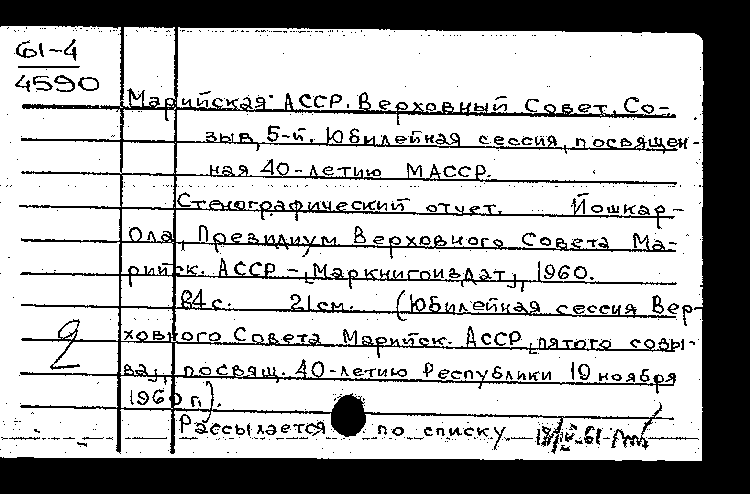 61-4
4590
Марийская АССР. Верховный Совет. Со-
зыв, 5-й. Юбилейная сессия, посвящен-
ная 40-летию МАССР.
Стенографический отчет. Йошкар-
Ола, Президиум Верховного Совета Ма-
рийск. АССР –[Маркнигоиздат], 1960.
84 с. 21 см. (Юбилейная сессия Вер-
ховного Совета Марийск. АССР [пятого созы-
ва], посвящ. 40-летию Республики 19 ноября
1960 г.).
2
Рассылается по списку. 18/IV-61